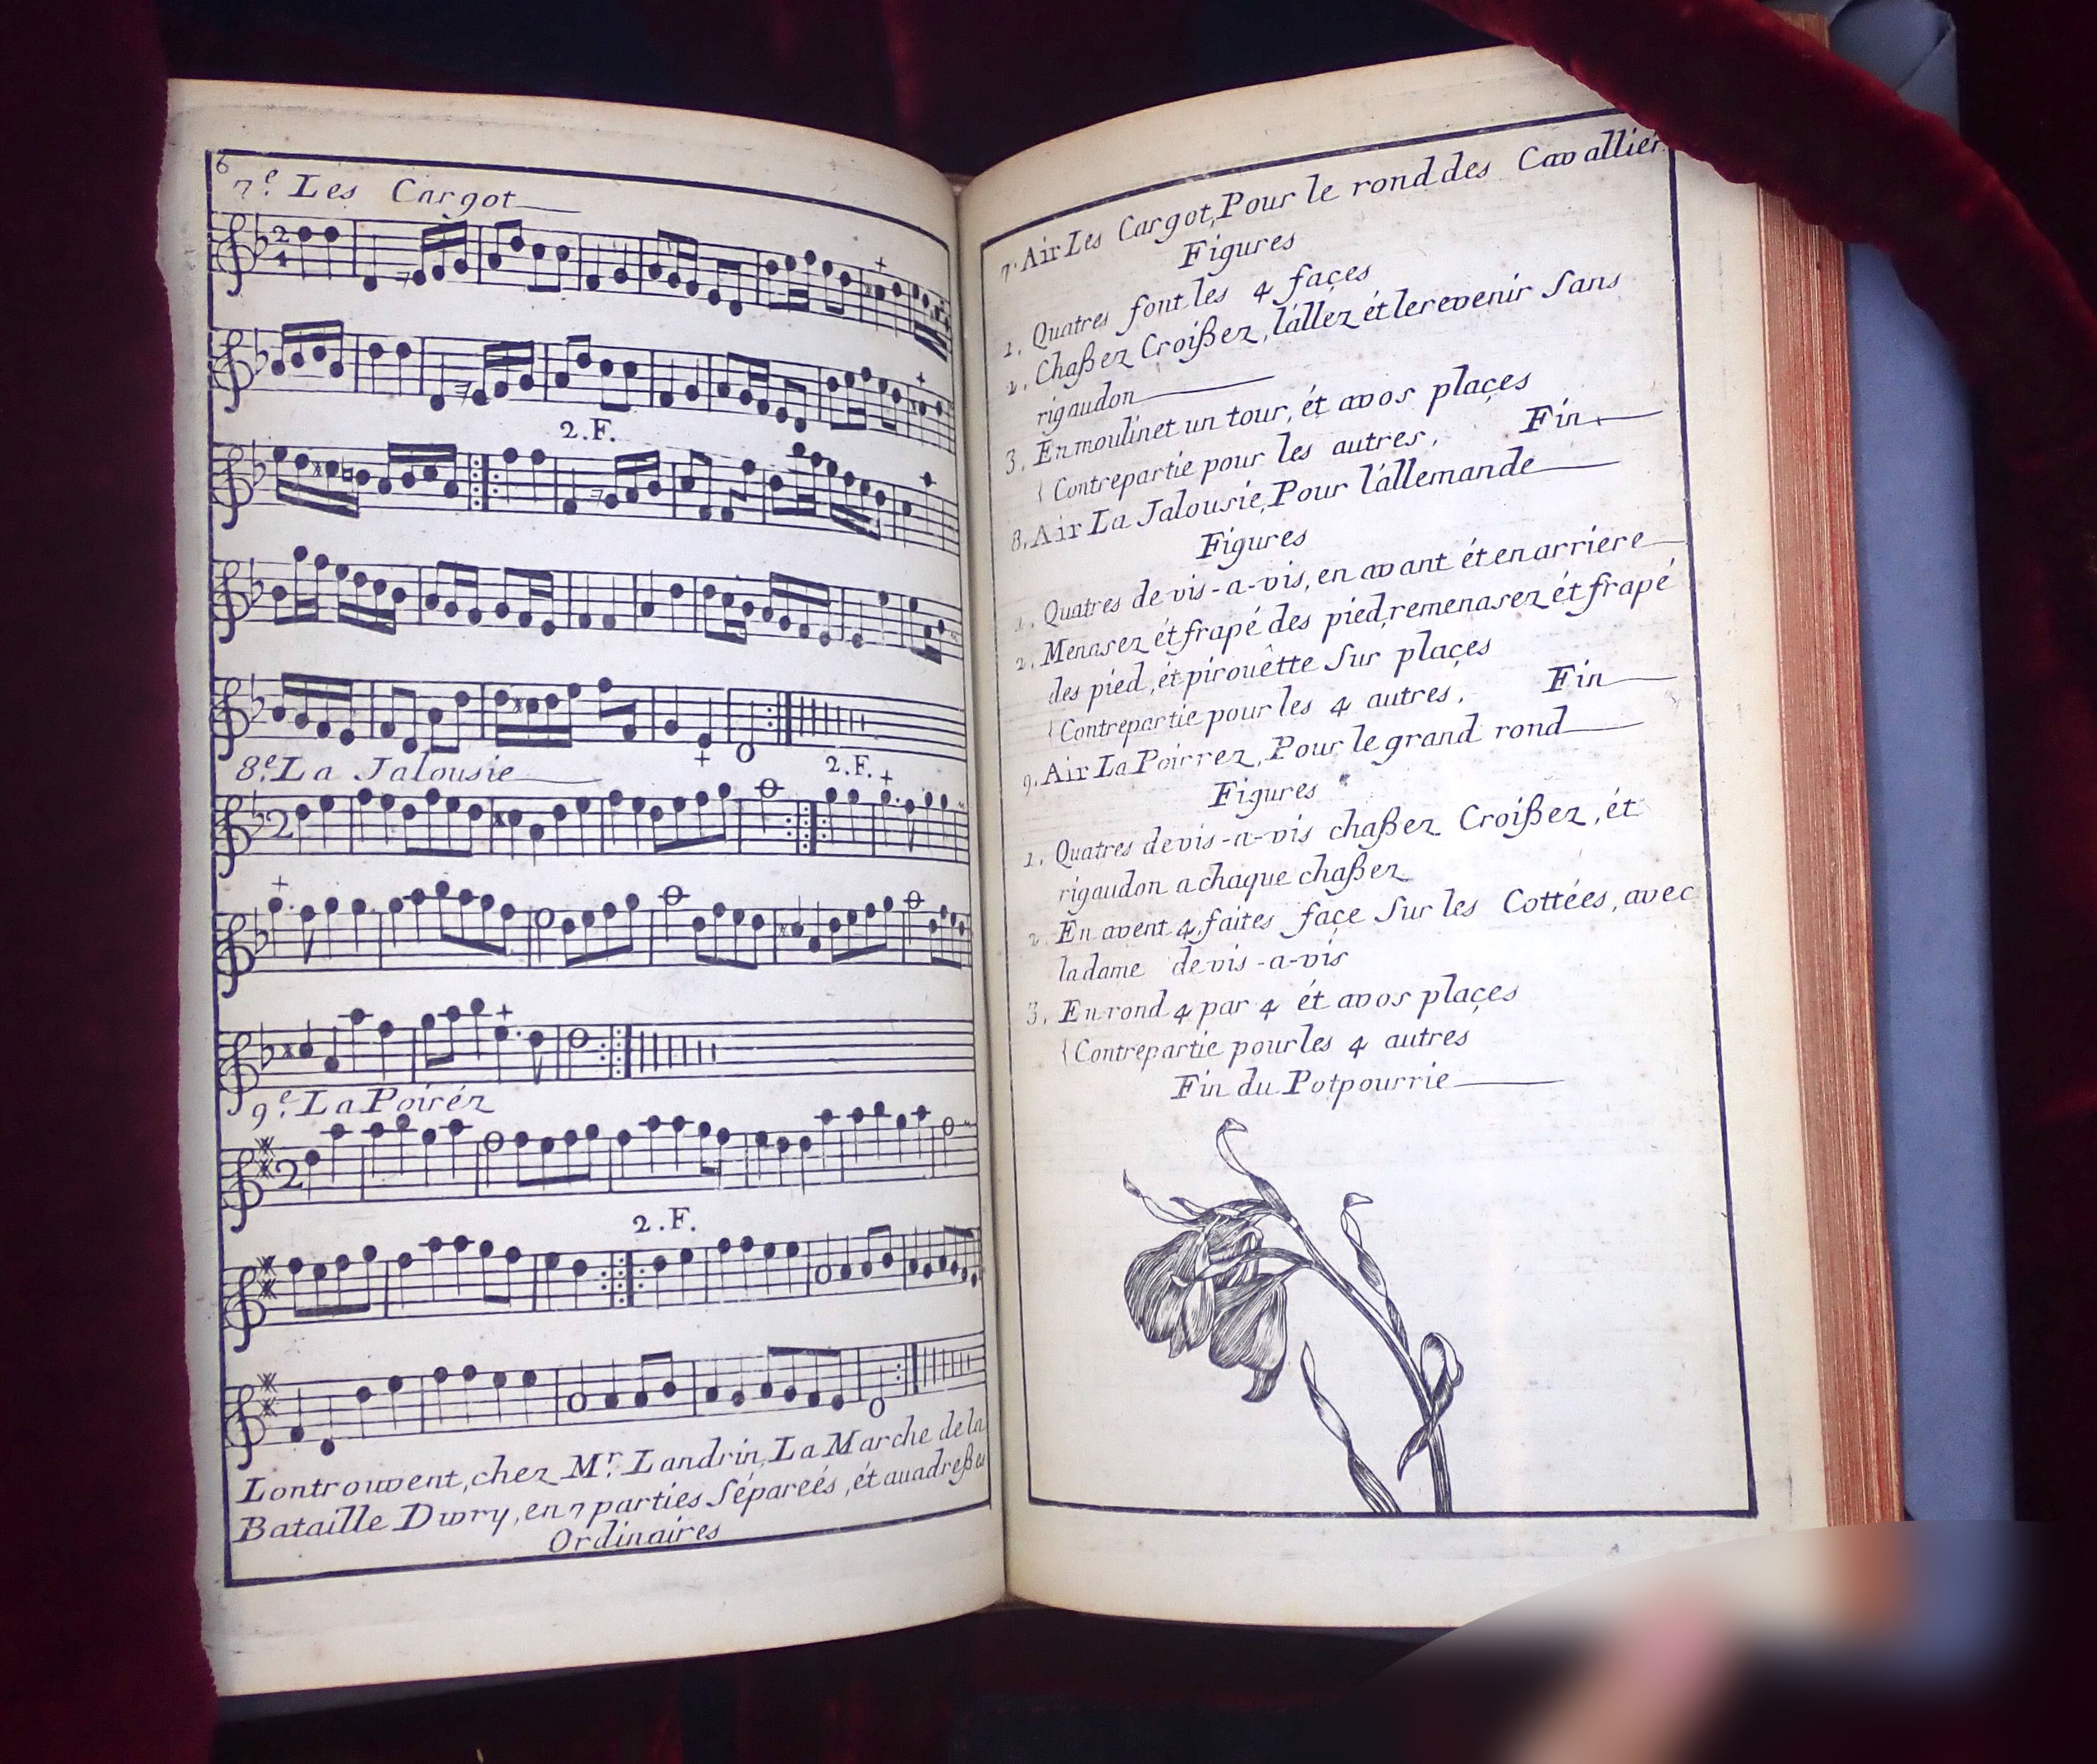 6
7.e Les Cargot
2.F.
8.e La Jalousie
2.F.
9.e La Poiréz
2.F.
Lontrouvent, chez Mr. Landrin, La Marche de la
Bataille Dwry, en 7 parties Sépareés, ét auadreßes
Ordinaires
7. Air Les Cargot, Pour le rond des Cavallier
Figures
1. Quatres font les 4 façes
2. Chaßez Croißez, l'allez ét lerevenir Sans
rigaudon
3. En moulinet un tour, ét avos plaçes
{ Contrepartie pour les autres. Fin.
8. Air La Jalousie, Pour l'allemande
Figures
1. Quatres de vis-a-vis, en avant ét en arriere
2. Menasez ét frapé des pied, remenasez ét frapé
des pied, ét pirouêtte Sur plaçes
{ Contrepartie pour les 4 autres. Fin
9. Air La Poirrez, Pour le grand rond
Figures
1. Quatres de vis-a-vis chaßez Croißez, ét
rigaudon a chaque chaßez
2. En avent 4. faites façe Sur les Cottées, avec
la dame de vis-a-vis
3. En rond 4 par 4 ét avos plaçes
{ Contrepartie pour les 4 autres
Fin du Potpourrie